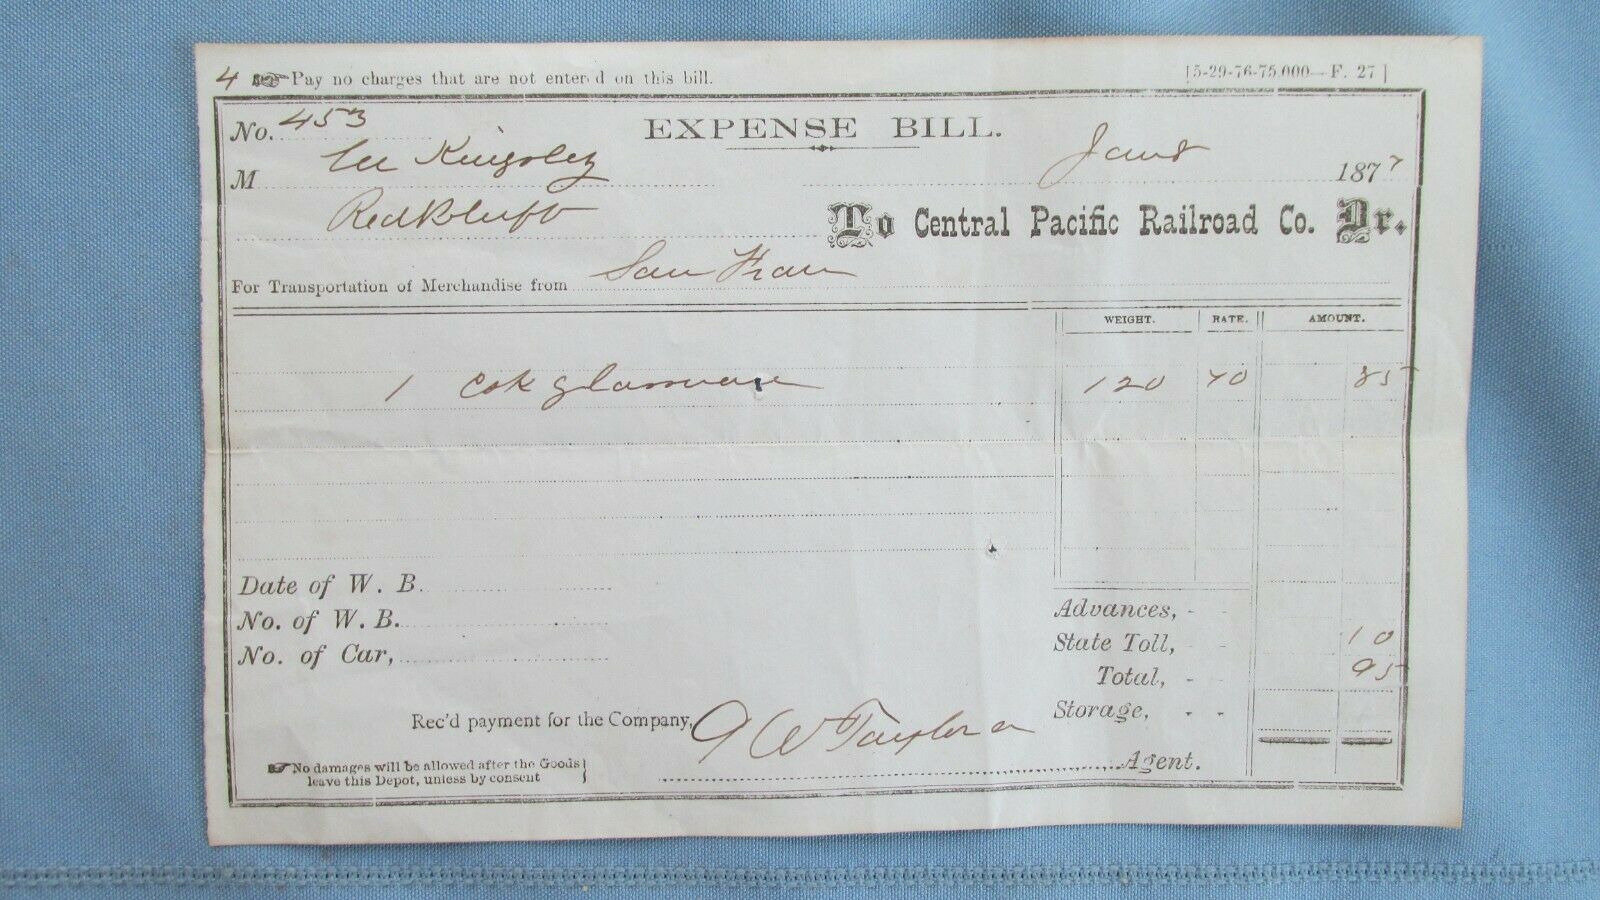 4 Pay no charges that are not entered on this bill. [5-29-76-75,000—F. 27]
No. 453 EXPENSE BILL.
M Kingsley Jan 8 1877
Red Bluff To Central Pacific Railroad Co. Dr.
For Transportation of Merchandise from San Fran
WEIGHT. RATE. AMOUNT.
1 Csk glassware 120 70 85
Date of W. B.
No. of W. B. Advances, - -
No. of Car, State Toll, - - 10
Total, - 95
Rec'd payment for the Company, Storage, - -
Taylor
No damages will be allowed after the Goods Agent.
leave this Depot, unless by consent